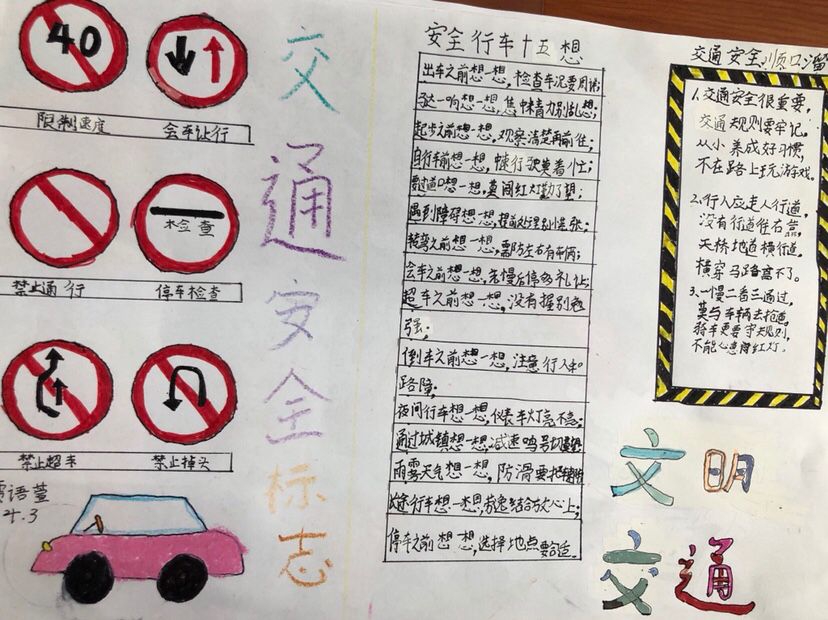 40
限制速度
会车让行
检查
禁止通行
停车检查
禁止超车
禁止掉头
语萱
4.3
交通安全标志
安全行车十五想
出车之前想一想,检查车况要周
一响想一想,集中精力别乱想;
起步之前想一想,观察清楚再前往;
自行车前想一想,中速行驶莫着忙;
要过道口想一想,莫闯红灯勤了望;
遇到障碍想一想,提前处理别慌张;
转弯之前想一想,需防左右有车辆;
会车之前想一想,先慢后停多礼让
超车之前想一想,没有握别勉
强;
倒车之前想一想,注意行人和
路障;
夜间行车想一想,仪表车灯亮不亮;
通过城镇想一想,减速鸣号切
雨雾天气想一想,防滑要把
途行车想一想,劳逸结合放心上;
停车之前想想,选择地点要合适。
交通安全顺口溜
1、交通安全很重要,
交通规则要牢记。
从小养成好习惯,
不在路上玩游戏。
2、行人应走人行道,
没有行道往右靠,
天桥地道横行道。
横穿马路离不了。
3、一慢二看三通过,
莫与车辆去抢道。
骑车更要守规则,
不能心急闯红灯。
文明
交通